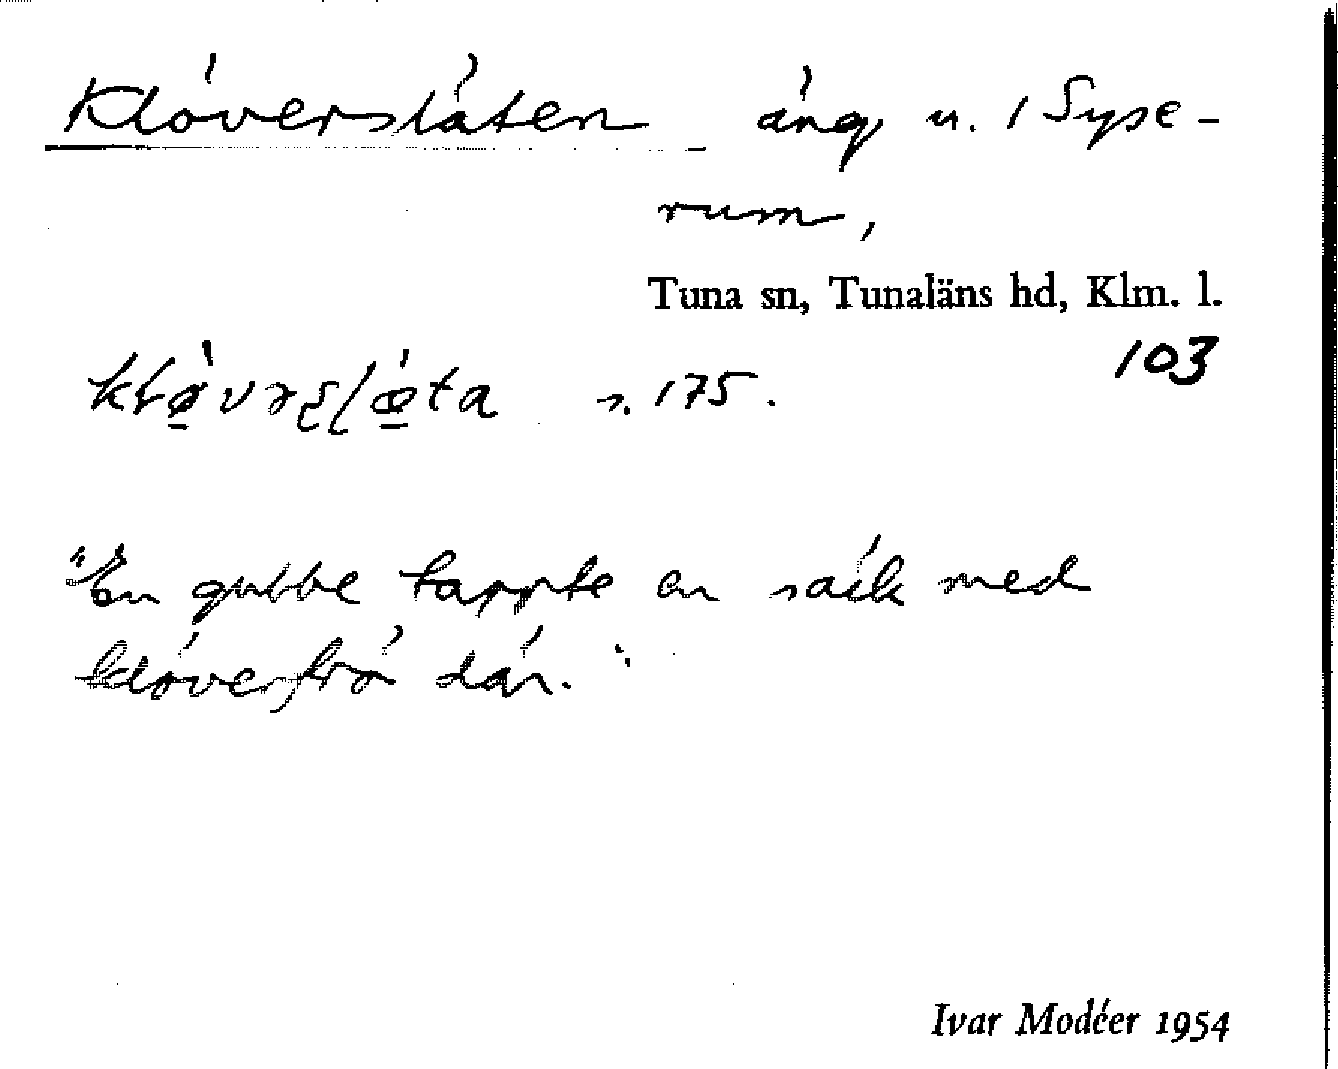 Klöverslåten äng u. 1 Sype-
rum,
Tuna sn, Tunaläns hd, Klm. l.
103
s. 175.
"En gubbe tappte en säck med
klöverfrö där."
Ivar Modéer 1954